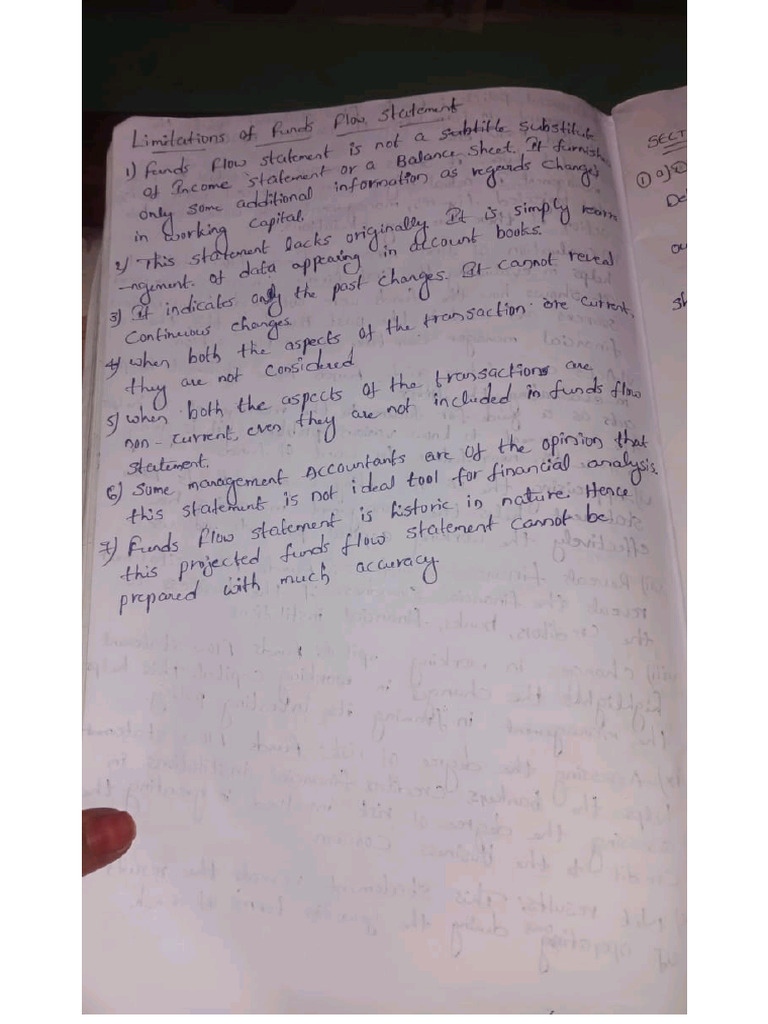 Limitations of Funds Flow Statement
1) Funds Flow statement is not a subtitile substitute
of Income statement or a Balance sheet. It furnish
only some additional information as regards changes
in working capital.
2) This statement lacks originally. It is simply rearra
-ngement. of data appearing in account books.
3) It indicates only the past changes. It cannot reveal
Continuous changes.
4) when both the aspects of the transaction are current,
they are not considered
5) when both the aspects of the transactions are
non-current, even they are not included in funds flow
statement.
6) Some management Accountants are of the opinion that
this statement is not ideal tool for financial analysis.
7) Funds flow statement is historic in nature. Hence
this projected funds flow statement cannot be
prepared with much accuracy.
SECT
① a)
De
ou
sh